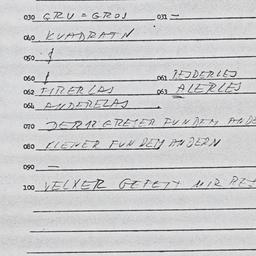 030 GRU = GROS 031 —
040 KVADRATN
050
060 061 JEDERLEJ
062 FIRERLAS 063 ALERLES
064 ANDERELAS
070 DER GRESER FUN DEM ANDE
080 KLENER FUN DEM ANDERN
090 —
100 VELXER GEFELT MIR BES